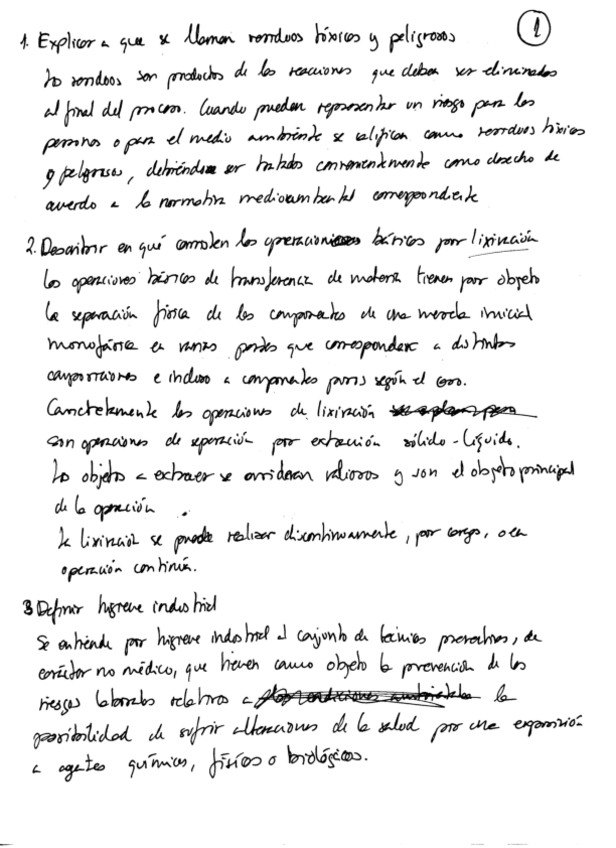 1
1. Explicar a que se llaman residuos tóxicos y peligrosos
Los residuos son productos de las reacciones que deben ser eliminados
al final del proceso. Cuando pueden representar un riesgo para las
personas o para el medio ambiente se califican como residuos tóxicos
y peligrosos, debiéndose ser tratados convenientemente como desecho de
acuerdo a la normativa medioambiental correspondiente
2. Describir en qué consisten las operaciones básicas por lixiviación
Las operaciones básicas de transferencia de materia tienen por objeto
la separación física de los componentes de una mezcla inicial
monofásica en varias partes que corresponden a distintas
composiciones e incluso a componentes puros según el caso.
Concretamente las operaciones de lixiviación
son operaciones de separación por extracción sólido-líquido.
Los objetos a extraer se consideran valiosos y son el objeto principal
de la operación.
La lixiviación se puede realizar discontinuamente, por cargas, o en
operación continua.
3 Definir higiene industrial
Se entiende por higiene industrial al conjunto de técnicas preventivas, de
carácter no médico, que tienen como objeto la prevención de los
riesgos laborales relativos a las condiciones ambientales la
posibilidad de sufrir alteraciones de la salud por una exposición
a agentes químicos, físicos o biológicos.